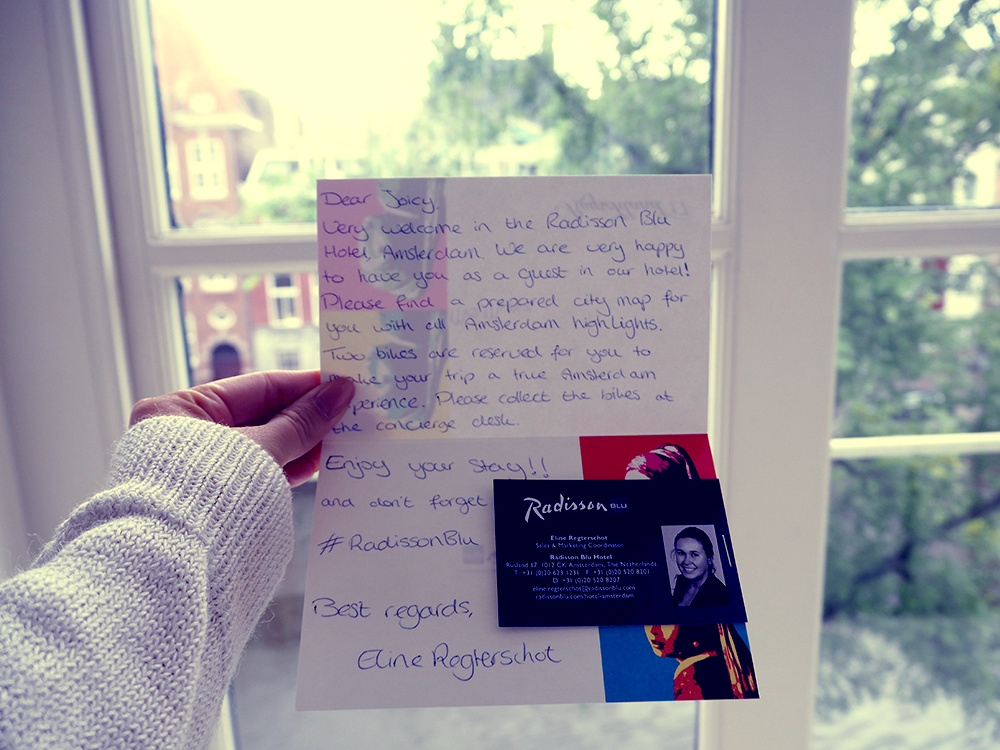 Dear Joicy,
Very welcome in the Radisson Blu
Hotel, Amsterdam. We are very happy
to have you as a guest in our hotel!
Please find a prepared city map for
you with all Amsterdam highlights.
Two bikes are reserved for you to
make your trip a true Amsterdam
xperience. Please collect the bikes at
the concierge desk.
Enjoy your stay!!
and don't forget
#RadissonBlu
Best regards,
Eline Regterschot
Radisson BLU
Eline Regterschot
Sales & Marketing Coordinator
Radisson Blu Hotel
Rusland 17, 1012 CK Amsterdam, The Netherlands
T: +31 (0)20 623 1231 F: +31 (0)20 520 8201
D: +31 (0)20 520 8207
eline.regterschot@radissonblu.com
radissonblu.com/hotel-amsterdam